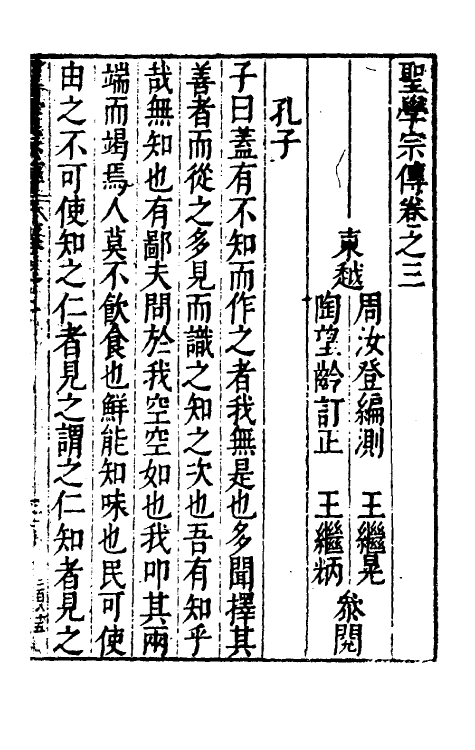 聖學宗傳卷之三
東越
周汝登編測
陶望齡訂正
王繼晃
王繼炳
參閱
孔子
子曰蓋有不知而作之者我無是也多聞擇其
善者而從之多見而識之知之次也吾有知乎
哉無知也有鄙夫問於我空空如也我叩其兩
端而竭焉人莫不飲食也鮮能知味也民可使
由之不可使知之仁者見之謂之仁知者見之